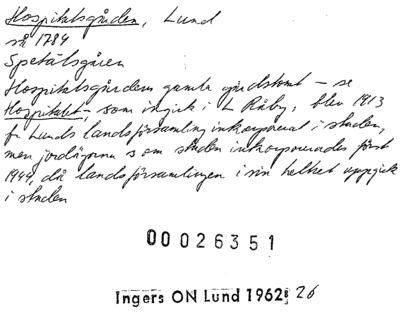 Hospitalsgården, Lund
så 1784
Spetälsgåren
Hospitalsgårdens gamla gårdstomt – se
Hospitalet –, som ingick i L Råby, blev 1913
fr Lunds landsförsamling inkorporerat i staden,
men jordägorna s om staden inkorporerades först
1944, då landsförsamlingen i sin helhet uppgick
i staden
00026351
Ingers ON Lund 1962 s 26